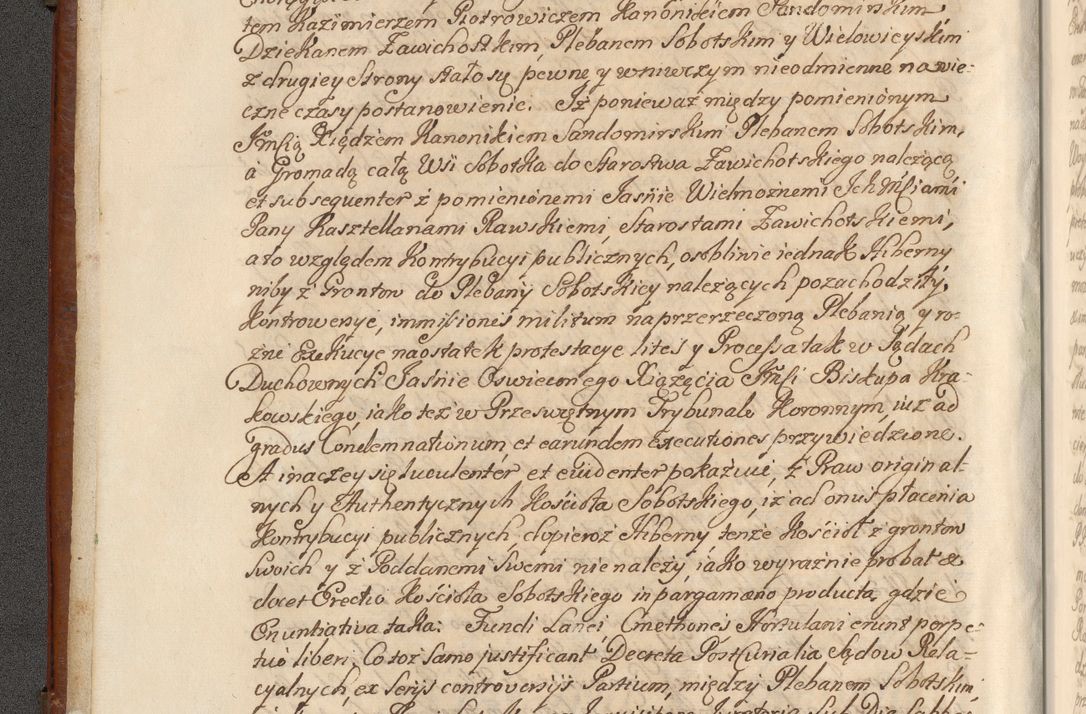 tem Kazimierzem Piotrowiczem Kanonikiem Sandomirskim
Dziekanem Zawichostskim, Plebanem Sobotskim y Wielowieyskim
z drugiey strony stało są pewne y wniwczym nieodmienne na wie-
czne czasy postanowienie. Iż ponieważ między pomienionym
Jmścią Xiędzem Kanonikiem Sandomirskim Plebanem Sobotskim,
a Gromadą całą Wsi Sobotka do Starostwa Zawichotskiego należącą
et subsequenter z pomienionemi Jaśnie Wielmożnemi Ich Mściami
Pany Kasztellanami Rawskiemi, Starostami Zawichotskiemi,
a to względem Kontrybucyi publicznych, osobliwie iednak Hiberny
niby z Grontow do Plebany Sobotskiey należących pozachodziły,
Kontrowersye, immissiones militum na przerzeczoną Plebanią, y ro-
żne Exekucye naostatek protestacye lites y Processa tak w Sądach
Duchownych Jaśnie Oswieconego Xiążęcia Jmści Biskupa Kra-
kowskiego, iako też w Prześwętnym Trybunale Koronnym, iuż ad
gradus Condemnationum et earundem Executiones przywiedzione.
A inaczey się luculenter et evidenter pokazuie, z Praw original-
nych y Authentycznych Kościoła Sobotskiego, iż ad onus płacenia
Kontrybucyi publicznych dopieroż Hiberny tenże Kościoł z grontow
swoich y z Poddanemi swemi nie należy, iako wyraźnie probat et
docet Erectio Kościoła Sobotskiego in pargameno producta, gdzie
Enuntiativa taka: Fundi Lanei Cmethones Hortulani erunt perpe-
tuo liberi. Co toż samo justificant Decreta Post Curialia Sądow Rela-
cyalnych, ex serys controversys Partium, między Plebanem Sobotskim